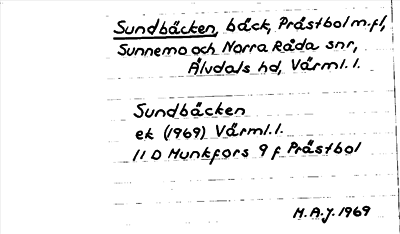 Sundbäcken, bäck, Prästbol m.fl,
Sunnemo och Norra Råda snr,
Älvdals hd, Värml.l.
Sundbäcken
ek (1969) Värml.l.
11 D Munkfors 9 f Prästbol
M.A.J. 1969